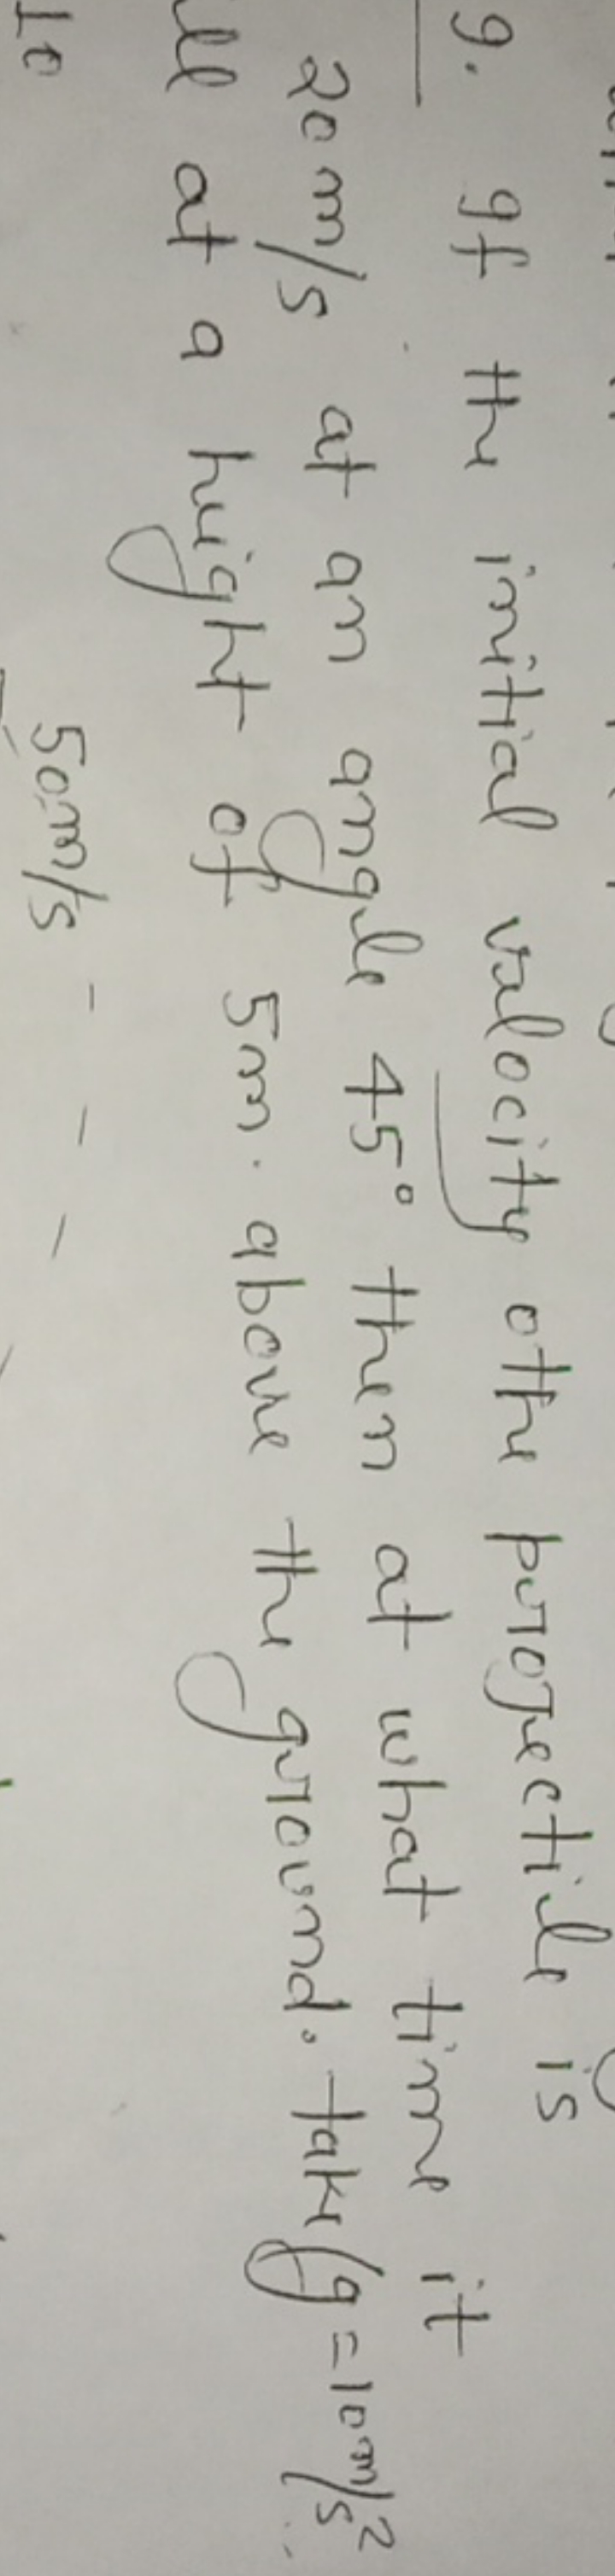 9. If the initial velocity othe projectile is
20 m/s at an angle 45° then at what time it
ll at a height of 5m. above the ground. take g = 10 m/s²
50m/s - - -
10